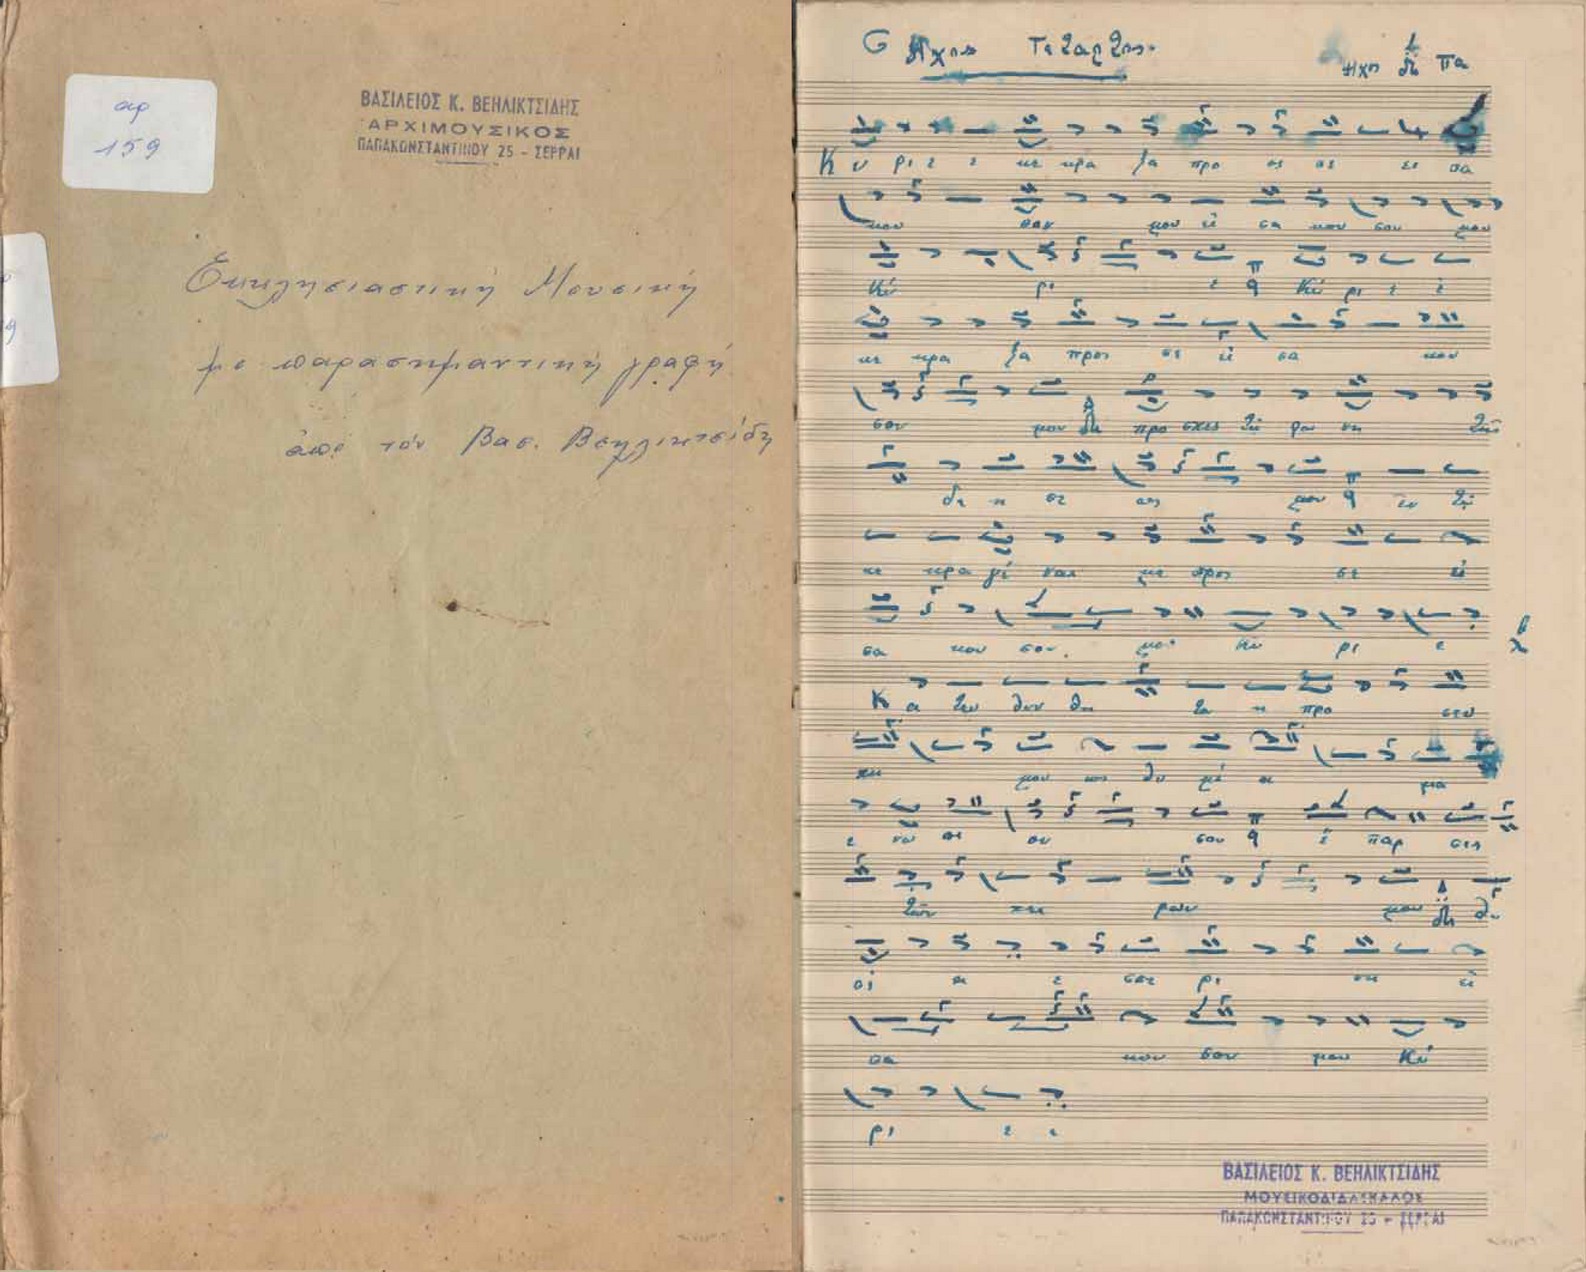 αρ
159
ΒΑΣΙΛΕΙΟΣ Κ. ΒΕΗΛΙΚΤΣΙΔΗΣ
ΑΡΧΙΜΟΥΣΙΚΟΣ
ΠΑΠΑΚΩΝΣΤΑΝΤΙΝΟΥ 25 - ΣΕΡΡΑΙ
Εκκλησιαστική Μουσική
με παρασημαντική γραφή
από τόν Βασ. Βεηλικτσίδη
Ηχος Τεταρτος.
Ηχος Πα
Κυ ρι ε ε κε κρα ξα προ ος σε ει σα
κου σον μου εί σα κου σον μου
Κύ ρι ε Κύ ρι ε ε
κε κρα ξα προς σε εί σα κου
σον μου προ σχες τη φω νη της
δε η σε ως μου εν τω
κε κρα γέ ναι με προς σε εί
σα κου σον. μου Κυ ρι ε
Κ α τευ θυν θη τω η προ σευ
χη μου ως θυ μί α μα
ε νω πι ον σου έ παρ σις
των χει ρων μου θυ
σι α ε σπε ρι νη εί
σα κου σον μου Κύ
ρι ε ε
ΒΑΣΙΛΕΙΟΣ Κ. ΒΕΗΛΙΚΤΣΙΔΗΣ
ΜΟΥΣΙΚΟΔΙΔΑΣΚΑΛΟΣ
ΠΑΠΑΚΩΝΣΤΑΝΤΙΝΟΥ 25 - ΣΕΡΡΑΙ